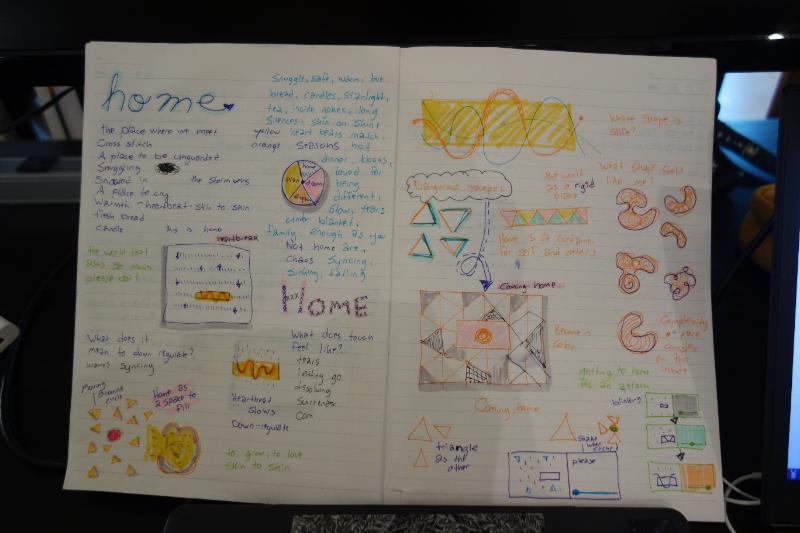 home
the place where we meet
Cross stitch
A place to be
Snuggling
Snowed in the storm
A place to cry
Warmth - heartbeat - skin to skin
fresh bread
candle
this is home
heartbreak
the world that
asks so much
please don't
What does it
mean to down regulate?
waves syncing
moving
around
circle
Home as
a space to
fill
Snuggle, safe, warm, love
bread, candles, starlight,
tea, inside jokes, long
Silences, skin on skin,
yellow heart beats match,
orange seasons hot
dinner, books,
loved for
being
different,
slow, tears
under blanket,
family, enough as you
Not home are,
Chaos syncing,
sinking, falling
HOME
What does touch
feel like?
tears
letting go
dissolving
Surrender
Com
Heartbeat
Slows
Down-regulate
to grow, to love
skin to skin
What shape is
safe?
Dangerous shapes
the world
as a rigid
place
What shape feels
like me?
Home is a
for self and others
Coming home
Become in
color
Complexity
more
complex
on the
inside
Coming home
triangle
as the
other
shape
please
getting to home
as an attach
blinking